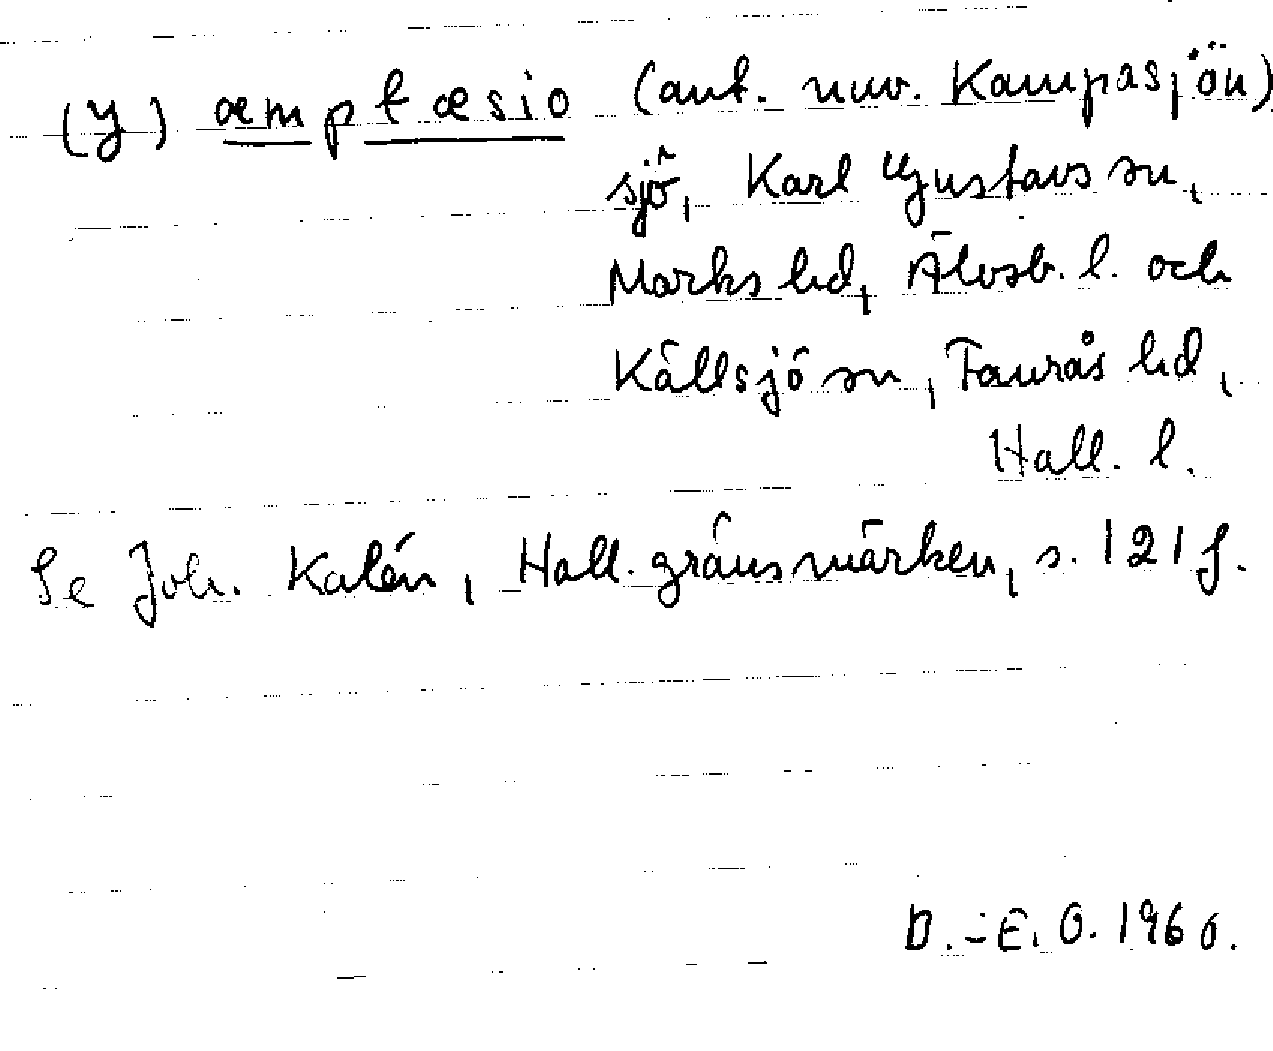 (y) æmptæsio (ant. nuv. Kampasjön)
sjö, Karl Gustavs sn,
Marks hd, Älvsb. l. och
Källsjö sn, Faurås hd,
Hall. l.
Se Joh. Kalén, Hall. gränsmärken, s. 121 f.
D.-E. O. 1960.